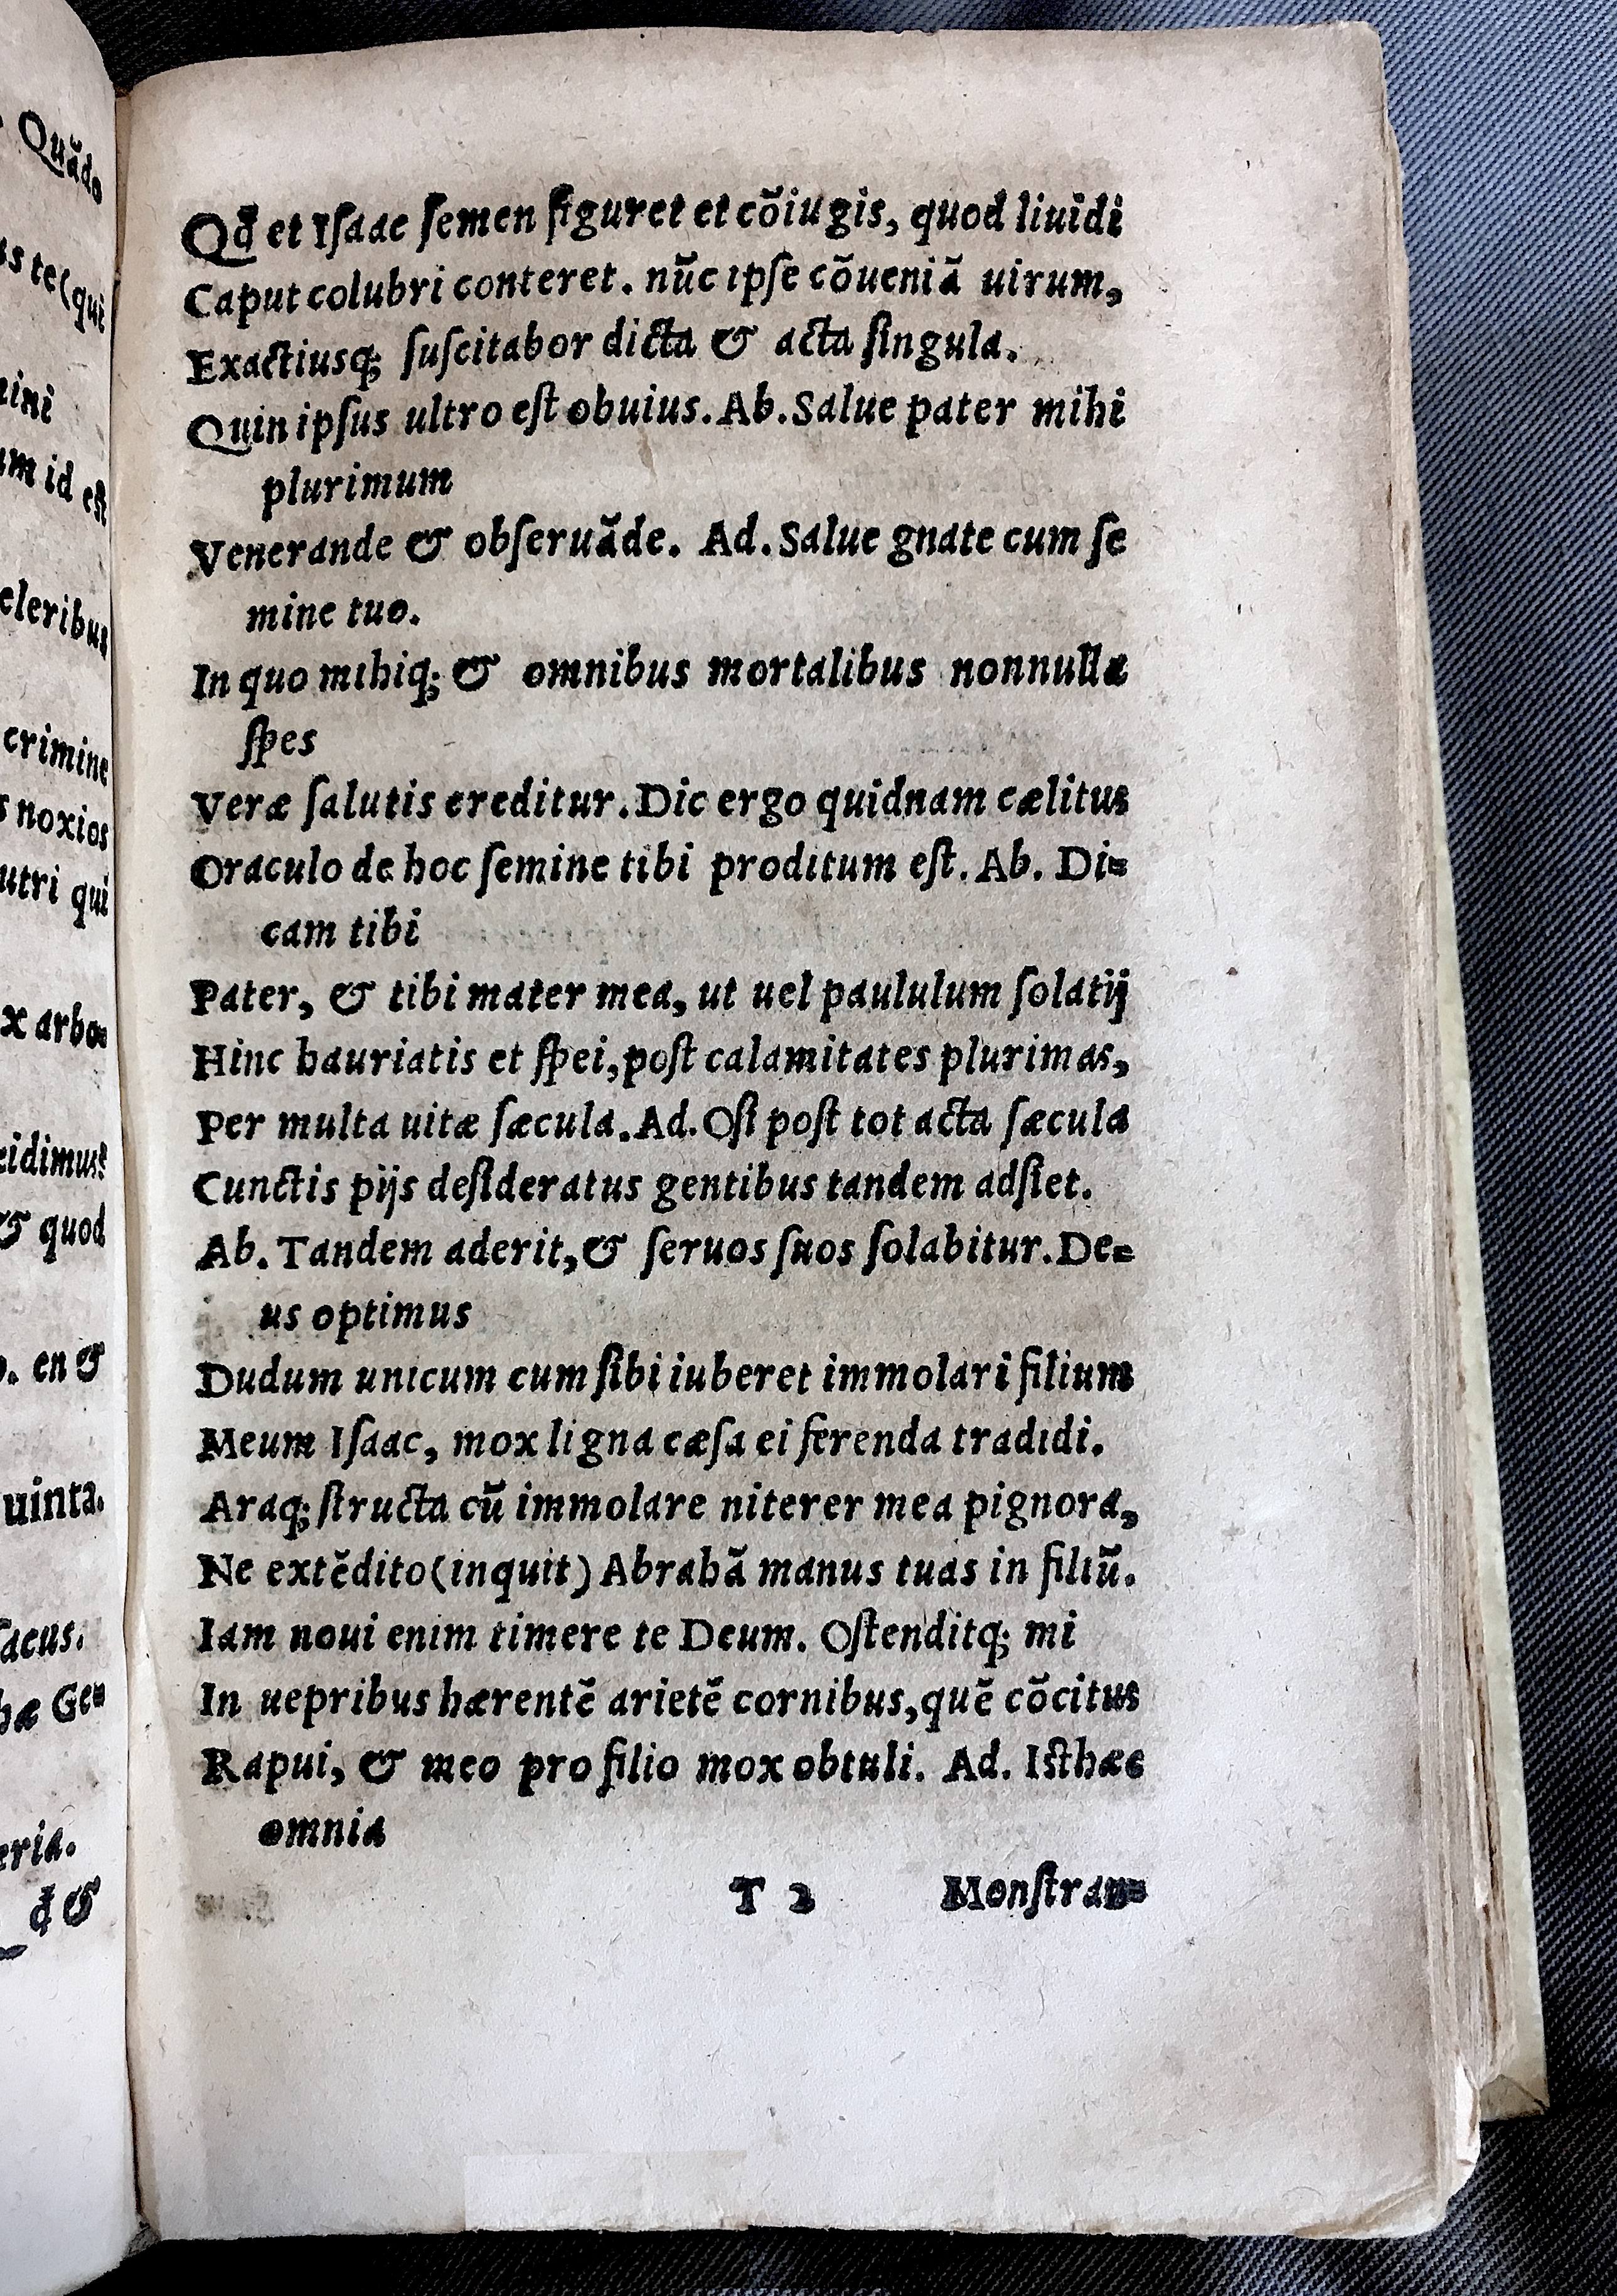 Qđ et Iſaac ſemen figuret et cõiugis, quod liuidi
Caput colubri conteret. nũc ipſe cõueniã uirum,
Exactiusq; ſuſcitabor dicta & acta ſingula.
Quin ipſus ultro eſt obuius. Ab. Salue pater mihi
plurimum
Venerande & obſeruãde. Ad. Salue gnate cum ſe
mine tuo.
In quo mihiq; & omnibus mortalibus nonnullæ
ſpes
Veræ ſalutis creditur. Dic ergo quidnam cælitus
Oraculo de hoc ſemine tibi proditum eſt. Ab. Di=
cam tibi
Pater, & tibi mater mea, ut uel paululum ſolatij
Hinc hauriatis et ſpei, poſt calamitates plurimas,
Per multa uitæ ſæcula. Ad. Oſi poſt tot acta ſæcula
Cunctis pijs deſideratus gentibus tandem adſiet.
Ab. Tandem aderit, & ſeruos ſuos ſolabitur. De=
us optimus
Dudum unicum cum ſibi iuberet immolari filium
Meum Iſaac, mox ligna cæſa ei ferenda tradidi.
Araq; ſtructa cũ immolare niterer mea pignora,
Ne extẽdito (inquit) Abrahã manus tuas in filiũ.
Iam noui enim timere te Deum. Oſtenditq; mi
In uepribus hærentẽ arietẽ cornibus, quẽ cõcitus
Rapui, & meo pro filio mox obtuli. Ad. Iſthæc
omnia
T 2 Monſtran=
Quãdo
te (qui
id eſt
eleribus
crimine
noxios
utri qui
x arbo=
& quod
en &
uinta.
Ge=
đ &